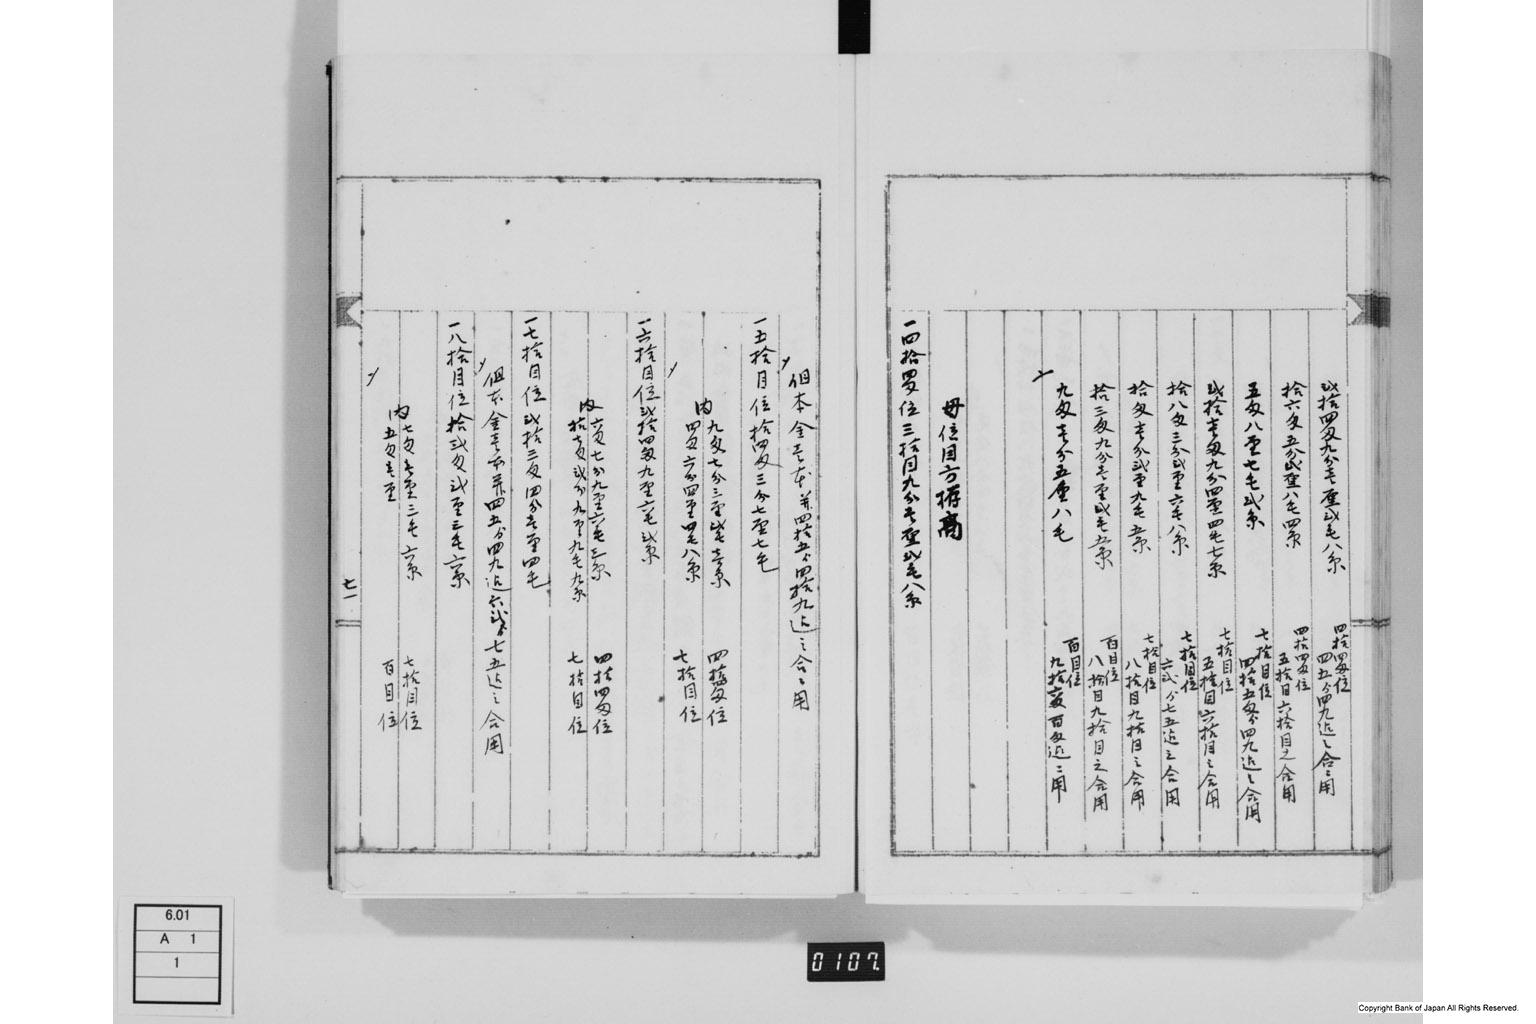 弐拾四匁九分壱厘弐毛八糸
四拾四匁位
四五分四九迄之合ニ用
拾六匁五分弐厘八毛四糸
四拾四匁位
五拾目六拾目之合用
五匁八厘七毛弐糸
七拾目位
四拾五匁分四九迄之合用
弐拾壱匁九分四厘四毛七糸
七拾目位
五拾目六拾目之合用
拾八匁三分弐厘六毛八糸
七拾目位
六弐分七五迄之合用
拾匁壱分弐厘九毛五糸
七拾目位
八拾目九拾目之合用
拾三匁九分壱厘弐毛五糸
百目位
八拾目九拾目之合用
九匁壱分五厘八毛
百目位
九拾六匁百匁迄ニ用
母位目方揮高
一四拾四匁位三拾目九分壱厘弐毛八糸
但本金壱両并四拾五分四拾九迄之合ニ用
一五拾目位拾四匁三分七厘七毛
内
九匁七分三厘弐毛壱糸
四拾四匁位
四匁六分四厘四毛八糸
七拾目位
一六拾目位弐拾四匁九厘六毛弐糸
内
六匁七分九厘六毛三糸
四拾四匁位
拾七匁弐分九厘九毛九糸
七拾目位
一七拾目位弐拾三匁四分壱厘四毛
但本金壱両并四五分四九迄六弐分七五迄之合用
一八拾目位拾弐匁弐厘三毛六糸
内
七匁壱厘三毛六糸
七拾目位
五匁壱厘
百目位
七一
6.01
A 1
1
0107.
Copyright Bank of Japan All Rights Reserved.